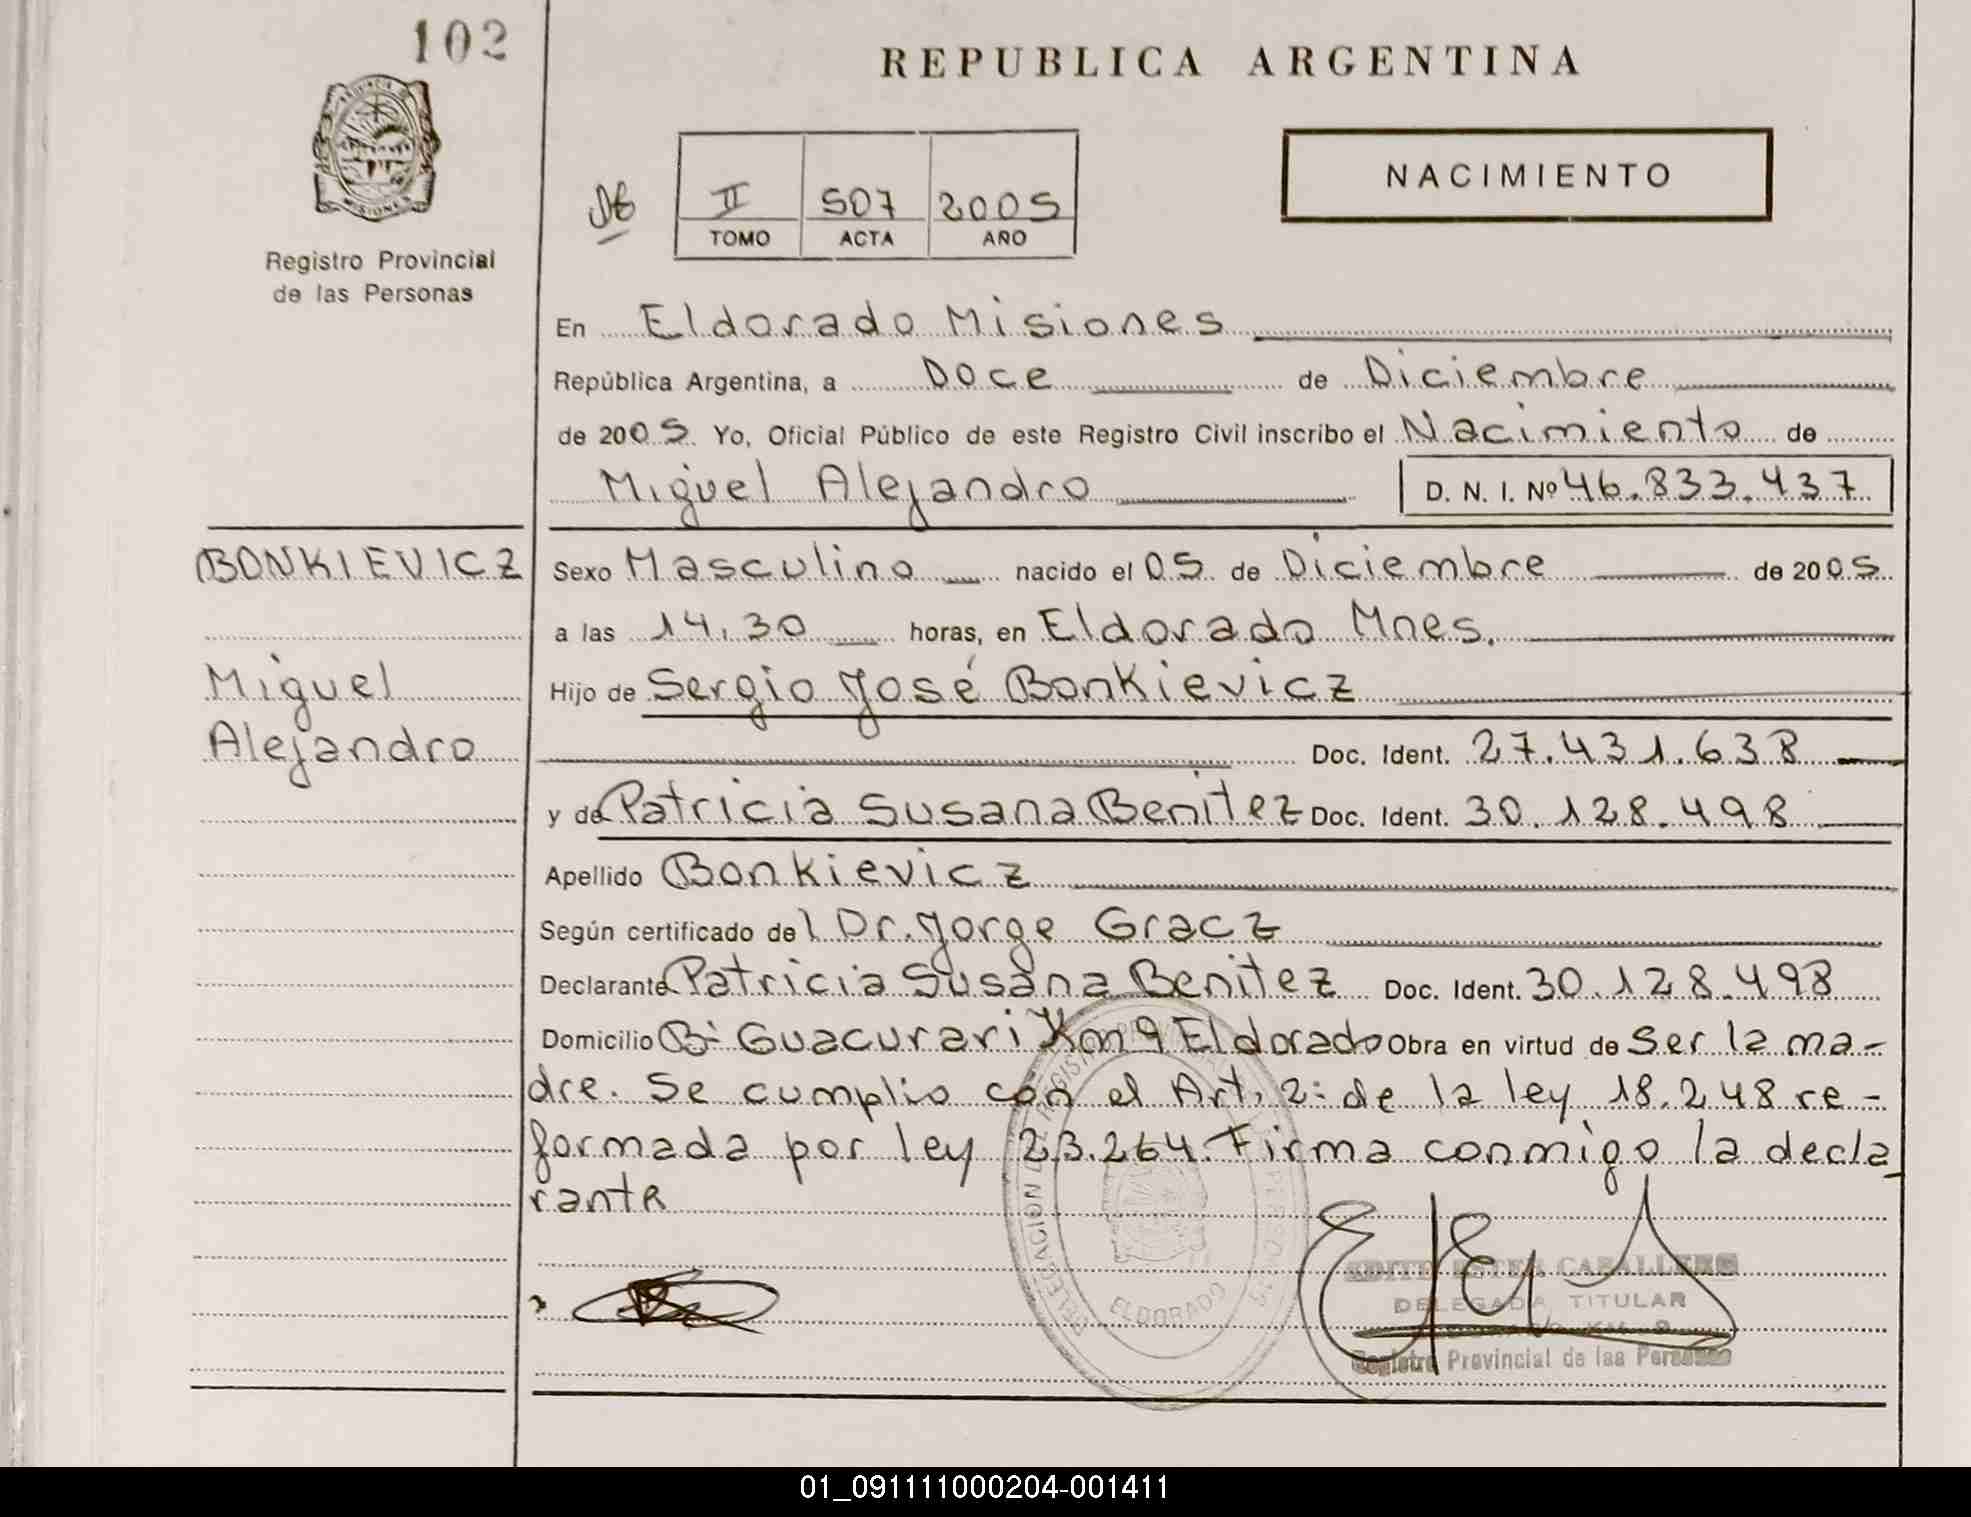 102
REPUBLICA ARGENTINA
NACIMIENTO
II 507 2005
TOMO ACTA AÑO
Registro Provincial
de las Personas
MISIONES
En Eldorado Misiones
República Argentina, a Doce de Diciembre
de 2005 Yo, Oficial Público de este Registro Civil inscribo el Nacimiento de
Miguel Alejandro D. N. I. Nº 46.833.437
BONKIEVICZ
Miguel
Alejandro
Sexo Masculino nacido el 05 de Diciembre de 2005
a las 14.30 horas, en Eldorado Mnes.
Hijo de Sergio José Bonkievicz
Doc. Ident. 27.431.638
y de Patricia Susana Benitez Doc. Ident. 30.128.498
Apellido Bonkievicz
Según certificado del Dr. Jorge Gracz
Declarante Patricia Susana Benitez Doc. Ident. 30.128.498
Domicilio Bº Guacurari Km 9 Eldorado Obra en virtud de ser la ma-
dre. Se cumplio con el Art. 2º de la ley 18.248 re-
formada por ley 23.264. Firma conmigo la decla
rante
ELDORADO
EDITH ESTER CABALLERO
DELEGADA TITULAR
Registro Provincial de las Personas
01_091111000204-001411